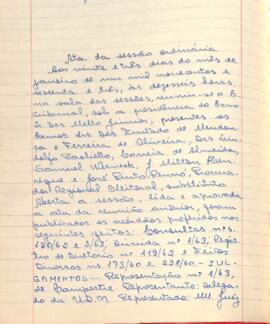 Ata da sessão ordinária
Aos vinte e três dias do mês de
janeiro de um mil novecentos e
sessenta e três, às dezesseis horas,
na sala das sessões, reuniu-se o E.
Tribunal, sob a presidência do Exmo
Sr. Des. Mello Júnior, presentes os
Exmos Srs. Des. Furtado de Mendon-
ça e Ferreira de Oliveira, Drs. Lin-
dolfo Paoliello, Correia de Almeida,
Samuel Werneck, J. Milton Hen-
rique e José Pinto Renno, Procura-
dor Regional Eleitoral, substituto.
Aberta a sessão, lida e aprovada
a ata da reunião anterior, foram
publicados os acórdãos proferidos nos
seguintes feitos: Consultas nºs.
180/62 e 3/63, Dúvida nº 1/63, Regis-
tro de Diretório nº 119/62 e Feitos
Diversos nºs. 173/60 e 228/60. - JUL-
GAMENTOS - Representação nº 1/63,
de Campestre. Representante: Delega-
do da U.D.N. Representado: M. Juiz